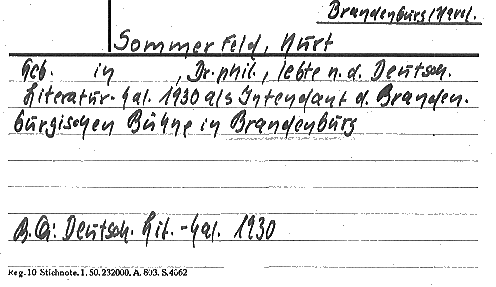 Brandenburg/Havel.
Sommerfeld, Kurt
Geb. in , Dr. phil., lebte n. d. Deutsch.
Literatur-Kal. 1930 als Intendant d. Branden-
burgischen Bühne in Brandenburg
B.Q: Deutsch. Lit.-Kal. 1930
Reg. 10 Stichnote. 1. 50. 232000. A. 803. S. 4062